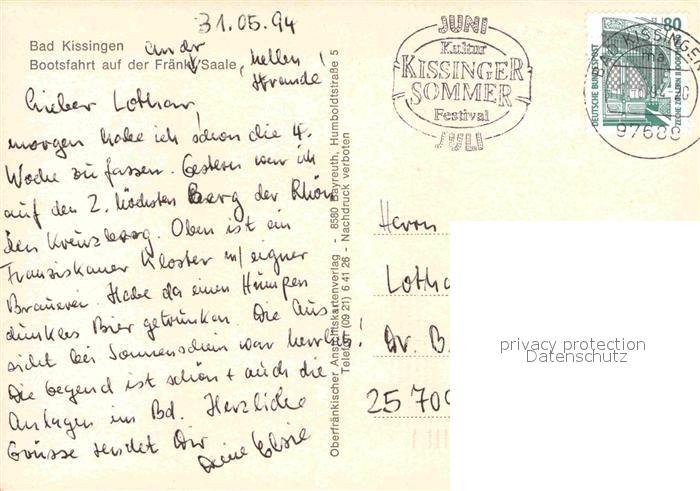 31.05.94
Bad Kissingen
Bootsfahrt auf der Fränk. Saale
an der
hellen
Strande!
Lieber Lothar,
morgen habe ich schon die 4.
Woche zu fassen. Gestern war ich
auf den 2. höchsten Berg der Rhön
den Kreuzberg. Oben ist ein
Franziskaner Kloster m/ eigner
Brauerei. Habe da einen Humpen
dunkles Bier getrunken. Die Aus
sicht bei Sonnenschein war herrlich!
Die Gegend ist schön + auch die
Anlagen im Bd. Herzliche
Grüsse sendet Dir
Deine Elsie
Oberfränkischer Ansichtskartenverlag - 8580 Bayreuth, Humboldtstraße 5
Telefon (09 21) 6 41 26 - Nachdruck verboten
JUNI
Kultur
KISSINGER
SOMMER
Festival
JULI
80
DEUTSCHE BUNDESPOST
ZECHE ZOLLERN II
BAD KISSINGEN
ma
97688
Herrn
Lotha
Dr. B.
25 709
privacy protection
Datenschutz